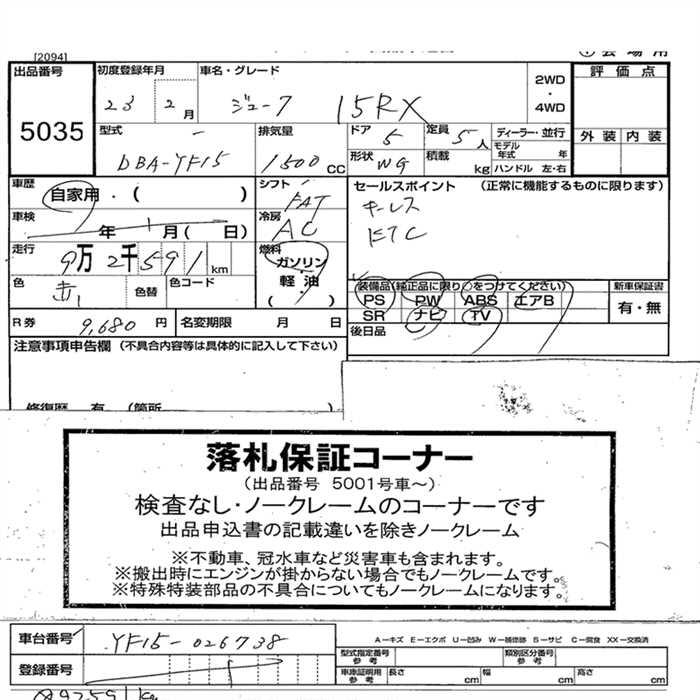 [2094]
会場用
出品番号 5035
初度登録年月 23 2月
車名・グレード ジューク 15RX
2WD・4WD
評価点
外装 内装
型式 DBA-YF15
排気量 1500 CC
ドア 5
定員 5人
形状 WG
積載 kg
ディーラー・並行
モデル年式 年
ハンドル 左・右
車歴 自家用・( )
シフト FAT
セールスポイント (正常に機能するものに限ります)
キーレス
ETC
車検 年 月(日)
冷房 AC
走行 9万2千591km
燃料 ガソリン・軽油・( )
色 赤 色替 色コード
装備品(純正品に限り○をつけてください)
PS PW ABS エアB
SR ナビ TV
新車保証書
有・無
R券 9,680円 名変期限 月 日
後日品
注意事項申告欄 (不具合内容等は具体的に記入して下さい)
修復歴 有 (箇所
落札保証コーナー
(出品番号 5001号車~)
検査なし・ノークレームのコーナーです
出品申込書の記載違いを除きノークレーム
※不動車、冠水車など災害車も含まれます。
※搬出時にエンジンが掛からない場合でもノークレームです。
※特殊特装部品の不具合についてもノークレームになります。
車台番号 YF15-026738
A-キズ E-エクボ U-凹み W-補修跡 S-サビ C-腐食 XX-交換済
型式指定番号 参考 類別区分番号 参考
登録番号
車庫証明用 参考 長さ cm 幅 cm 高さ cm
092591km